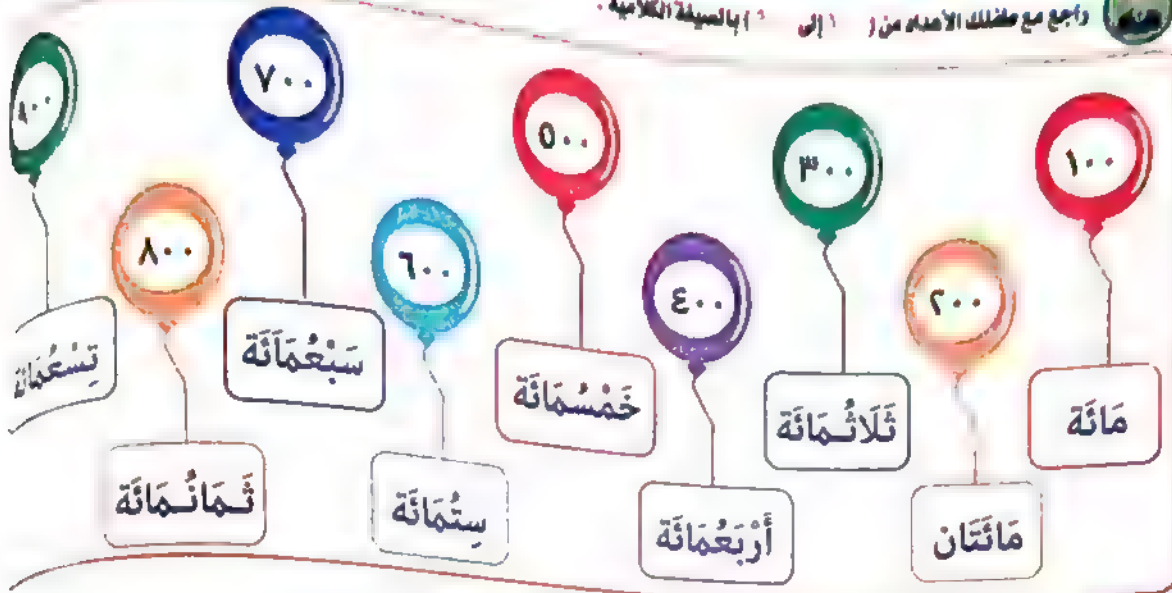 راجع مع طفلك الأعداد من ( إلى ) بالصيغة الكلامية .
١٠٠
مَائَة
٢٠٠
مَائَتَان
٣٠٠
ثَلَاثُمَائَة
٤٠٠
أَرْبَعُمَائَة
٥٠٠
خَمْسُمَائَة
٦٠٠
سِتُمَائَة
٧٠٠
سَبْعُمَائَة
٨٠٠
ثَمَانُمَائَة
تِسْعُمَائَة